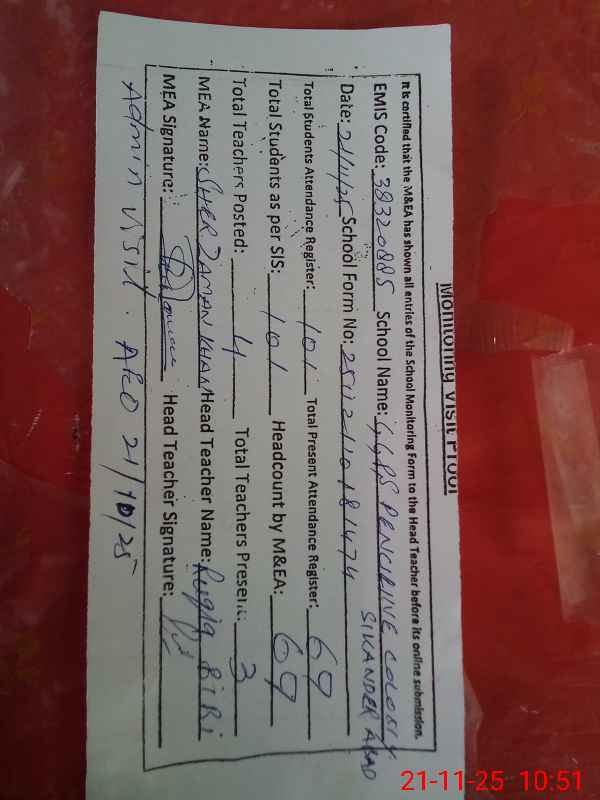 Monitoring Visit Proof
It is certified that the M&EA has shown all entries of the School Monitoring Form to the Head Teacher before its online submission.
EMIS Code: 38320885 School Name: GGPS PENCILLINE COLONY
SIKANDER ABAD
Date: 21/11/25 School Form No: 25112110181474
Total Students Attendance Register: 101 Total Present Attendance Register: 69
Total Students as per SIS: 101 Headcount by M&EA: 69
Total Teachers Posted: 4 Total Teachers Present: 3
MEA Name: SHER ZAMAN KHAN Head Teacher Name: Ruqia BIBI
MEA Signature: Head Teacher Signature:
Admin visit. 21/10/25
21-11-25 10:51